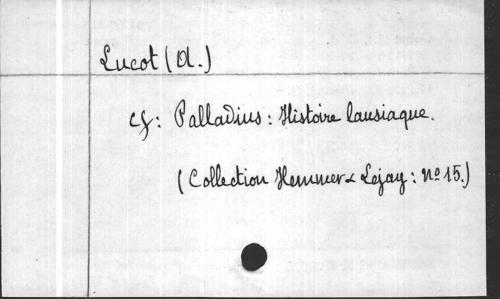 Lucot (A.)
cf: Palladius: Histoire lausiaque.
(Collection Hemmer & Lejay: nº 15.)